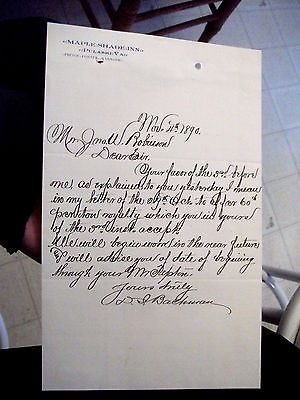 MAPLE SHADE INN
PULASKI, VA.
Nov. 4th 1890.
Mr Jno. W. Robinson
Dear Sir.
Your favor of the 3rd before
me, as explained to you yesterday I mean
in my letter of the 29th Oct. to offer 60¢
per ton royalty which you in yours
of the 3rd inst. accept.
We will begin work in the near future
& will advise you of date of beginning
through your
Yours truly